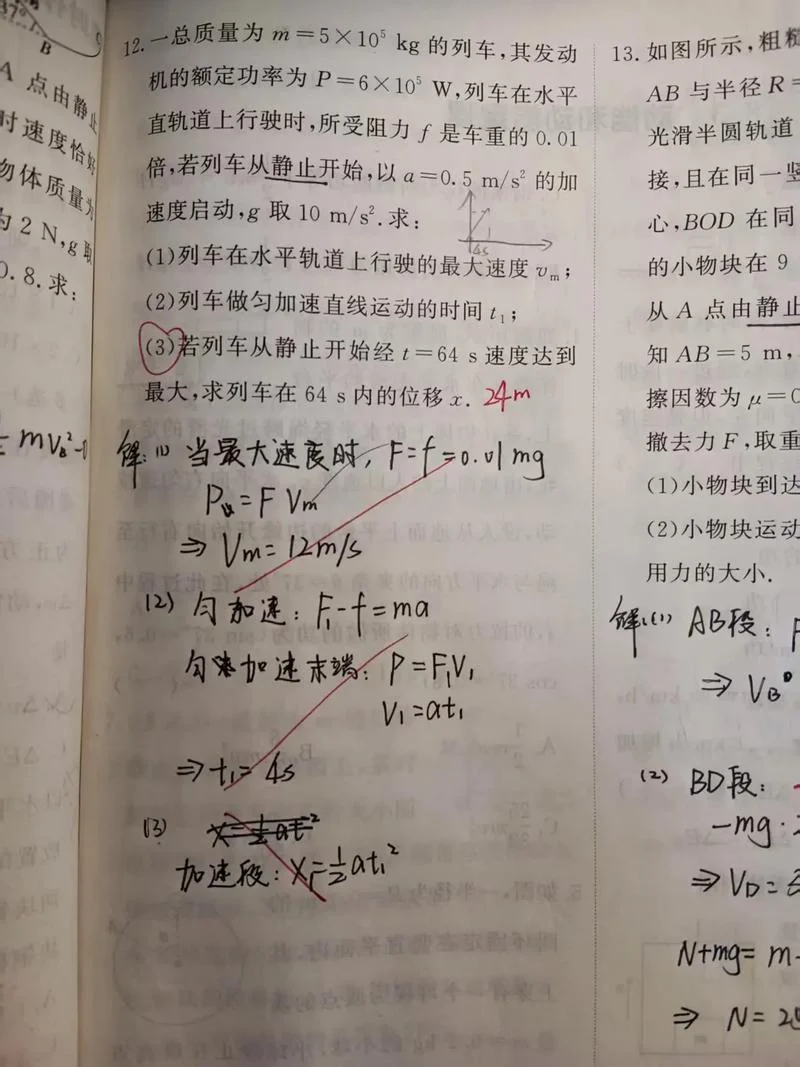 B
A 点由静止
时速度恰好
物体质量为
为 2 N,g 取
0.8.求:
= mV_B²-0
12.一总质量为 m=5×10⁵ kg 的列车,其发动
机的额定功率为 P=6×10⁵ W,列车在水平
直轨道上行驶时,所受阻力 f 是车重的 0.01
倍,若列车从静止开始,以 a=0.5 m/s² 的加
速度启动,g 取 10 m/s².求:
4s
(1)列车在水平轨道上行驶的最大速度 vₘ;
(2)列车做匀加速直线运动的时间 t₁;
(3)若列车从静止开始经 t=64 s 速度达到
最大,求列车在 64 s 内的位移 x. 24m
解:(1) 当最大速度时, F=f=0.01mg
P额=FVm
⇒ Vm=12m/s
(2) 匀加速: F₁-f=ma
匀加速末端: P=F₁V₁
V₁=at₁
⇒t₁=4s
(3) x=½at²
加速段: x₁=½at₁²
13.如图所示,粗糙
AB 与半径 R=
光滑半圆轨道
接,且在同一竖
心,BOD 在同
的小物块在 9
从 A 点由静止
知 AB=5 m,
擦因数为 μ=0
撤去力 F,取重
(1)小物块到达
(2)小物块运动
用力的大小.
解:(1) AB段: F
⇒ V_B
(2) BD段:
-mg·2
⇒ V_D=
N+mg= m
⇒ N=25